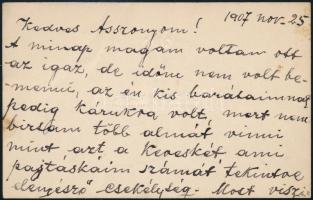 1907 nov. 25
Kedves Asszonyom!
A minap magam voltam ott
az igaz, de időm nem volt be-
menni, az én kis barátaimnak
pedig kárukra volt, mert nem
birtam több almát vinni
mint azt a keveskét, ami
pajtáskáim számát tekintve
elenyésző csekélység. Most viszi